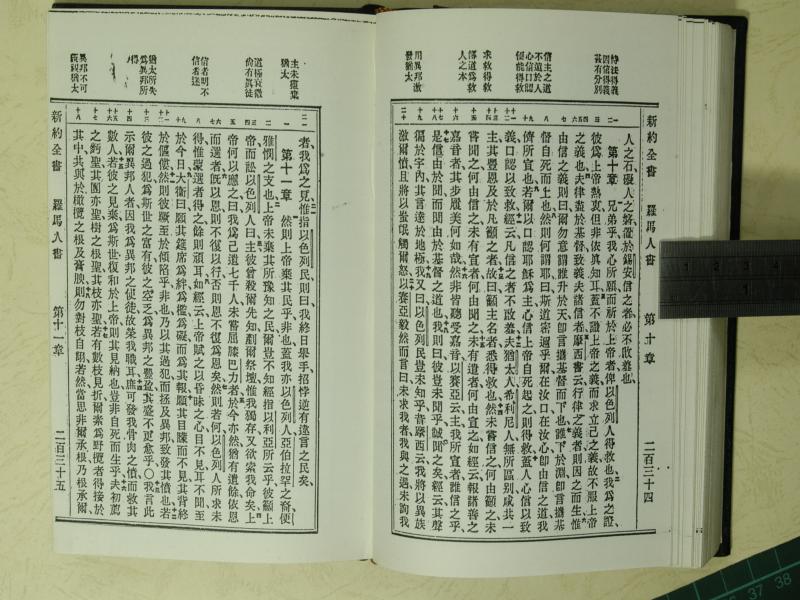 悖法得義
因信得義
甚有分別
信主之道
不遠於人
心信口認
便能得救
求救得救
傳道為救
人之本
用異邦激
發猶太
新約全書 羅馬人書 第十章 二百三十四
人之石礙人之磐於錫安信之者必不致羞也
第十章 兄弟乎我心所願而祈於上帝者俾以色列人得救也我為之證
彼為上帝熱衷但非依真知耳蓋不識上帝之義而求立己之義故不服上帝
之義也夫律盡於基督致義夫諸信者摩西書云行律之義者則因之而生惟
由信之義則曰爾勿意謂誰升於天即言攜基督而下也誰下於淵即言攜基
督自死而上也然則何謂耶曰斯道密邇乎爾在汝口在汝心即由信之道我
儕所宣也若爾以口認耶穌為主心信上帝自死起之則得救蓋人心信以致
義口認以致救經云凡信之者不致羞夫猶太人希利尼人無所區別咸共一
主其豐恩及於凡籲之者故曰籲主名者悉得救也然未嘗信之何由籲之未
嘗聞之何由信之未有宣者何由聞之未有遣者何由宣之如經云報諸善之
嘉音者其步履美何如哉然非皆聽受嘉音以賽亞云主我所宣者誰信之乎
是信由於聞而聞由於基督之道也我則曰彼豈未聞乎誠聞之矣經云其聲
徧於宇內其言達於地極我又曰以色列民豈未知乎昔摩西云我將以異族
激爾憤且將以蚩氓觸爾怒以賽亞毅然而言曰未求我者我與之遇未詢我
主未擯棄
猶太
道極衰微
尚有眞徒
信者明不
信者迷
猶太所失
為異邦所
得
異邦不可
藐視猶太
者我為之見惟指以色列民則曰我終日舉手招悖逆有違言之民矣
第十一章 然則上帝棄其民乎非也蓋我亦以色列人亞伯拉罕之裔便
雅憫之支也上帝未棄其所豫知之民爾豈不知經指以利亞所云乎彼籲上
帝而訟以色列人曰主彼曾殺爾先知剷爾祭壇惟我獨存又欲索我命矣上
帝何以應之曰我為己遺七千人未嘗屈膝巴力者於今亦然猶有遺餘依恩
而選者既以恩則不復以行否則恩不復為恩矣然則若何以色列人所求未
得惟蒙選者得之餘則頑耳如經云上帝賦之以昏昧之心目不見耳不聞至
於今日大衛曰願其筵席為絆為檻為礙而為其報願其目矇而不見其背終
於傴僂然則彼蹶至於傾陷乎非也乃以其過犯而拯及異邦致發其憤也若
彼之過犯為斯世之富有彼之空乏為異邦之豐盈其盛不更愈乎○我言此
示爾異邦人者因我為異邦之使徒故榮我職耳庶可發我骨肉之憤而救其
數人若彼之見棄為斯世復和於上帝則其見納也豈非自死而生乎夫初薦
之麪聖其團亦聖樹之根聖其枝亦聖若有數枝見折爾素為野橄者得接於
其中共與於橄欖之根及膏腴則勿對枝自詡若然當思非爾承根乃根承爾
新約全書 羅馬人書 第十一章 二百三十五